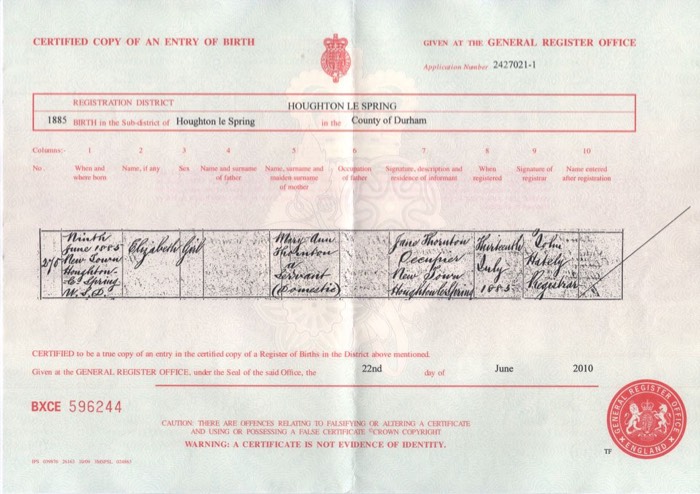 CERTIFIED COPY OF AN ENTRY OF BIRTH
GIVEN AT THE GENERAL REGISTER OFFICE
Application Number 2427021-1
REGISTRATION DISTRICT
HOUGHTON LE SPRING
1885 BIRTH in the Sub-district of Houghton le Spring in the County of Durham
Columns:- 1 2 3 4 5 6 7 8 9 10
No. When and Name, if any Sex Name and surname Name, surname and Occupation Signature, description and When Signature of Name entered
where born of father maiden surname of father residence of informant registered registrar after registration
of mother
Ninth Mary Ann Jane Thornton Thirteenth John
June 1885 Elizabeth Girl Thornton Occupier July Hately
New Town a Servant New Town 1885 Registrar
Houghton- (Domestic) Houghton le Spring
le Spring
U.S.D.
CERTIFIED to be a true copy of an entry in the certified copy of a Register of Births in the District above mentioned.
Given at the GENERAL REGISTER OFFICE, under the Seal of the said Office, the 22nd day of June 2010
BXCE 596244
CAUTION: THERE ARE OFFENCES RELATING TO FALSIFYING OR ALTERING A CERTIFICATE
AND USING OR POSSESSING A FALSE CERTIFICATE ©CROWN COPYRIGHT
WARNING: A CERTIFICATE IS NOT EVIDENCE OF IDENTITY.
GENERAL REGISTER OFFICE
ENGLAND
TF